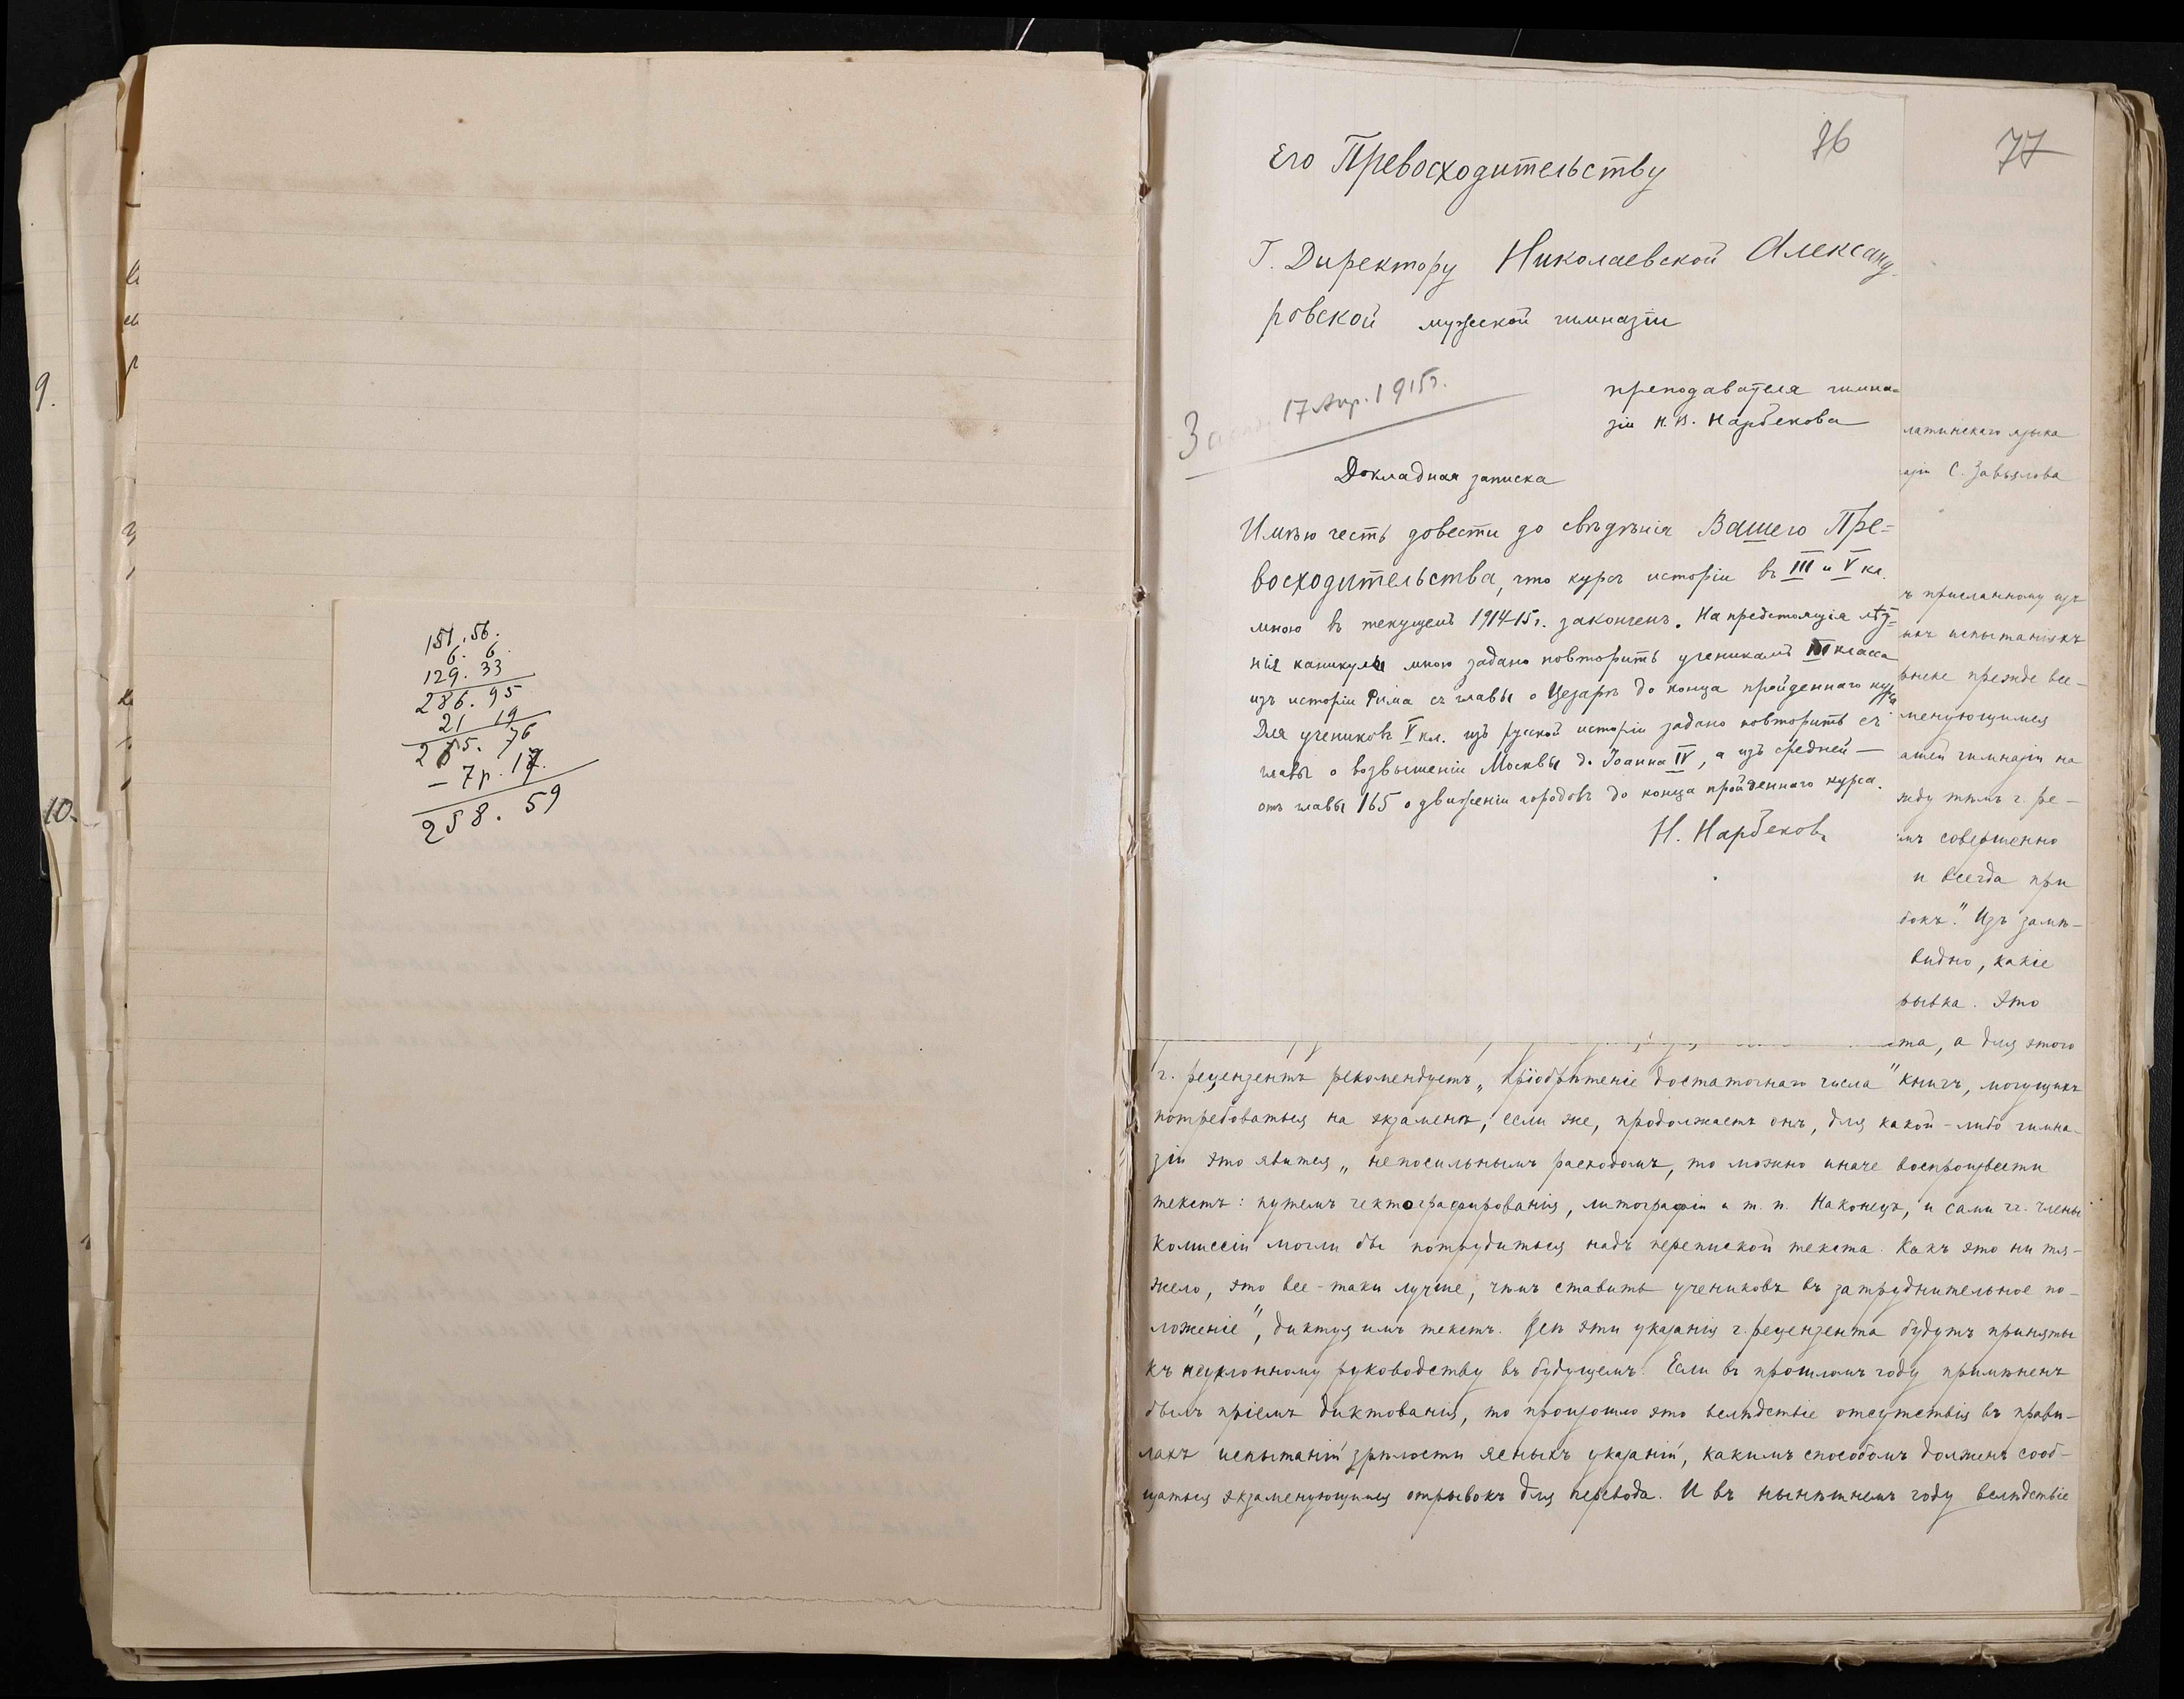 9.
10.
151.56.
6. 6.
129.33
286.95
21 19
265.76
- 7р.17.
258.59
76
77
Его Превосходительству
Г. Директору Николаевской Александ-
ровской мужской гимназіи
преподавателя гимна-
зіи Н.В. Нарбекова
17 Апр. 1915г.
Докладная записка
Имѣю честь довести до свѣдѣнія Вашего Пре=
восходительства, что курсъ исторіи въ III и V кл.
мною въ текущемъ 1914-15г. законченъ. На предстоящія лѣт=
нія каникулы мною задано повторить ученикамъ III класса
изъ исторіи Рима съ главы о Цезарѣ до конца пройденнаго курса
Для учениковъ V кл. изъ русской исторіи задано повторить съ
главы о возвышеніи Москвы до Іоанна IV, а изъ средней —
отъ главы 165 о движеніи городовъ до конца пройденнаго курса.
Н. Нарбековъ
латинскаго языка
азіи С. Завьялова
ъ присланному изъ
ныхъ испытаніяхъ
прежде все-
менующимся
ашей гимназіи на
жду тѣмъ г. ре-
имъ совершенно
и всегда при
бокъ." Изъ замѣ-
видно, какіе
рывка. Это
та, а для этого
г. рецензентъ рекомендуетъ „пріобрѣтеніе достаточнаго числа" книгъ, могущихъ
потребоваться на экзаменѣ; если же, продолжаетъ онъ, для какой-либо гимна-
зіи это явится „непосильнымъ расходомъ, то можно иначе воспроизвести
текстъ: путемъ гектографированія, литографіи и т. п. Наконецъ, и сами гг. члены
комиссіи могли бы потрудиться надъ перепиской текста. Какъ это ни тя-
жело, это все-таки лучше, чѣмъ ставить учениковъ въ затруднительное по-
ложеніе", диктуя имъ текстъ. Всѣ эти указанія г. рецензента будутъ приняты
къ неуклонному руководству въ будущемъ. Если въ прошломъ году примѣненъ
былъ пріемъ диктованія, то произошло это вслѣдствіе отсутствія въ прави-
лахъ испытаній зрѣлости ясныхъ указаній, какимъ способомъ долженъ сооб-
щаться экзаменующимся отрывокъ для перевода. И въ нынѣшнемъ году вслѣдствіе